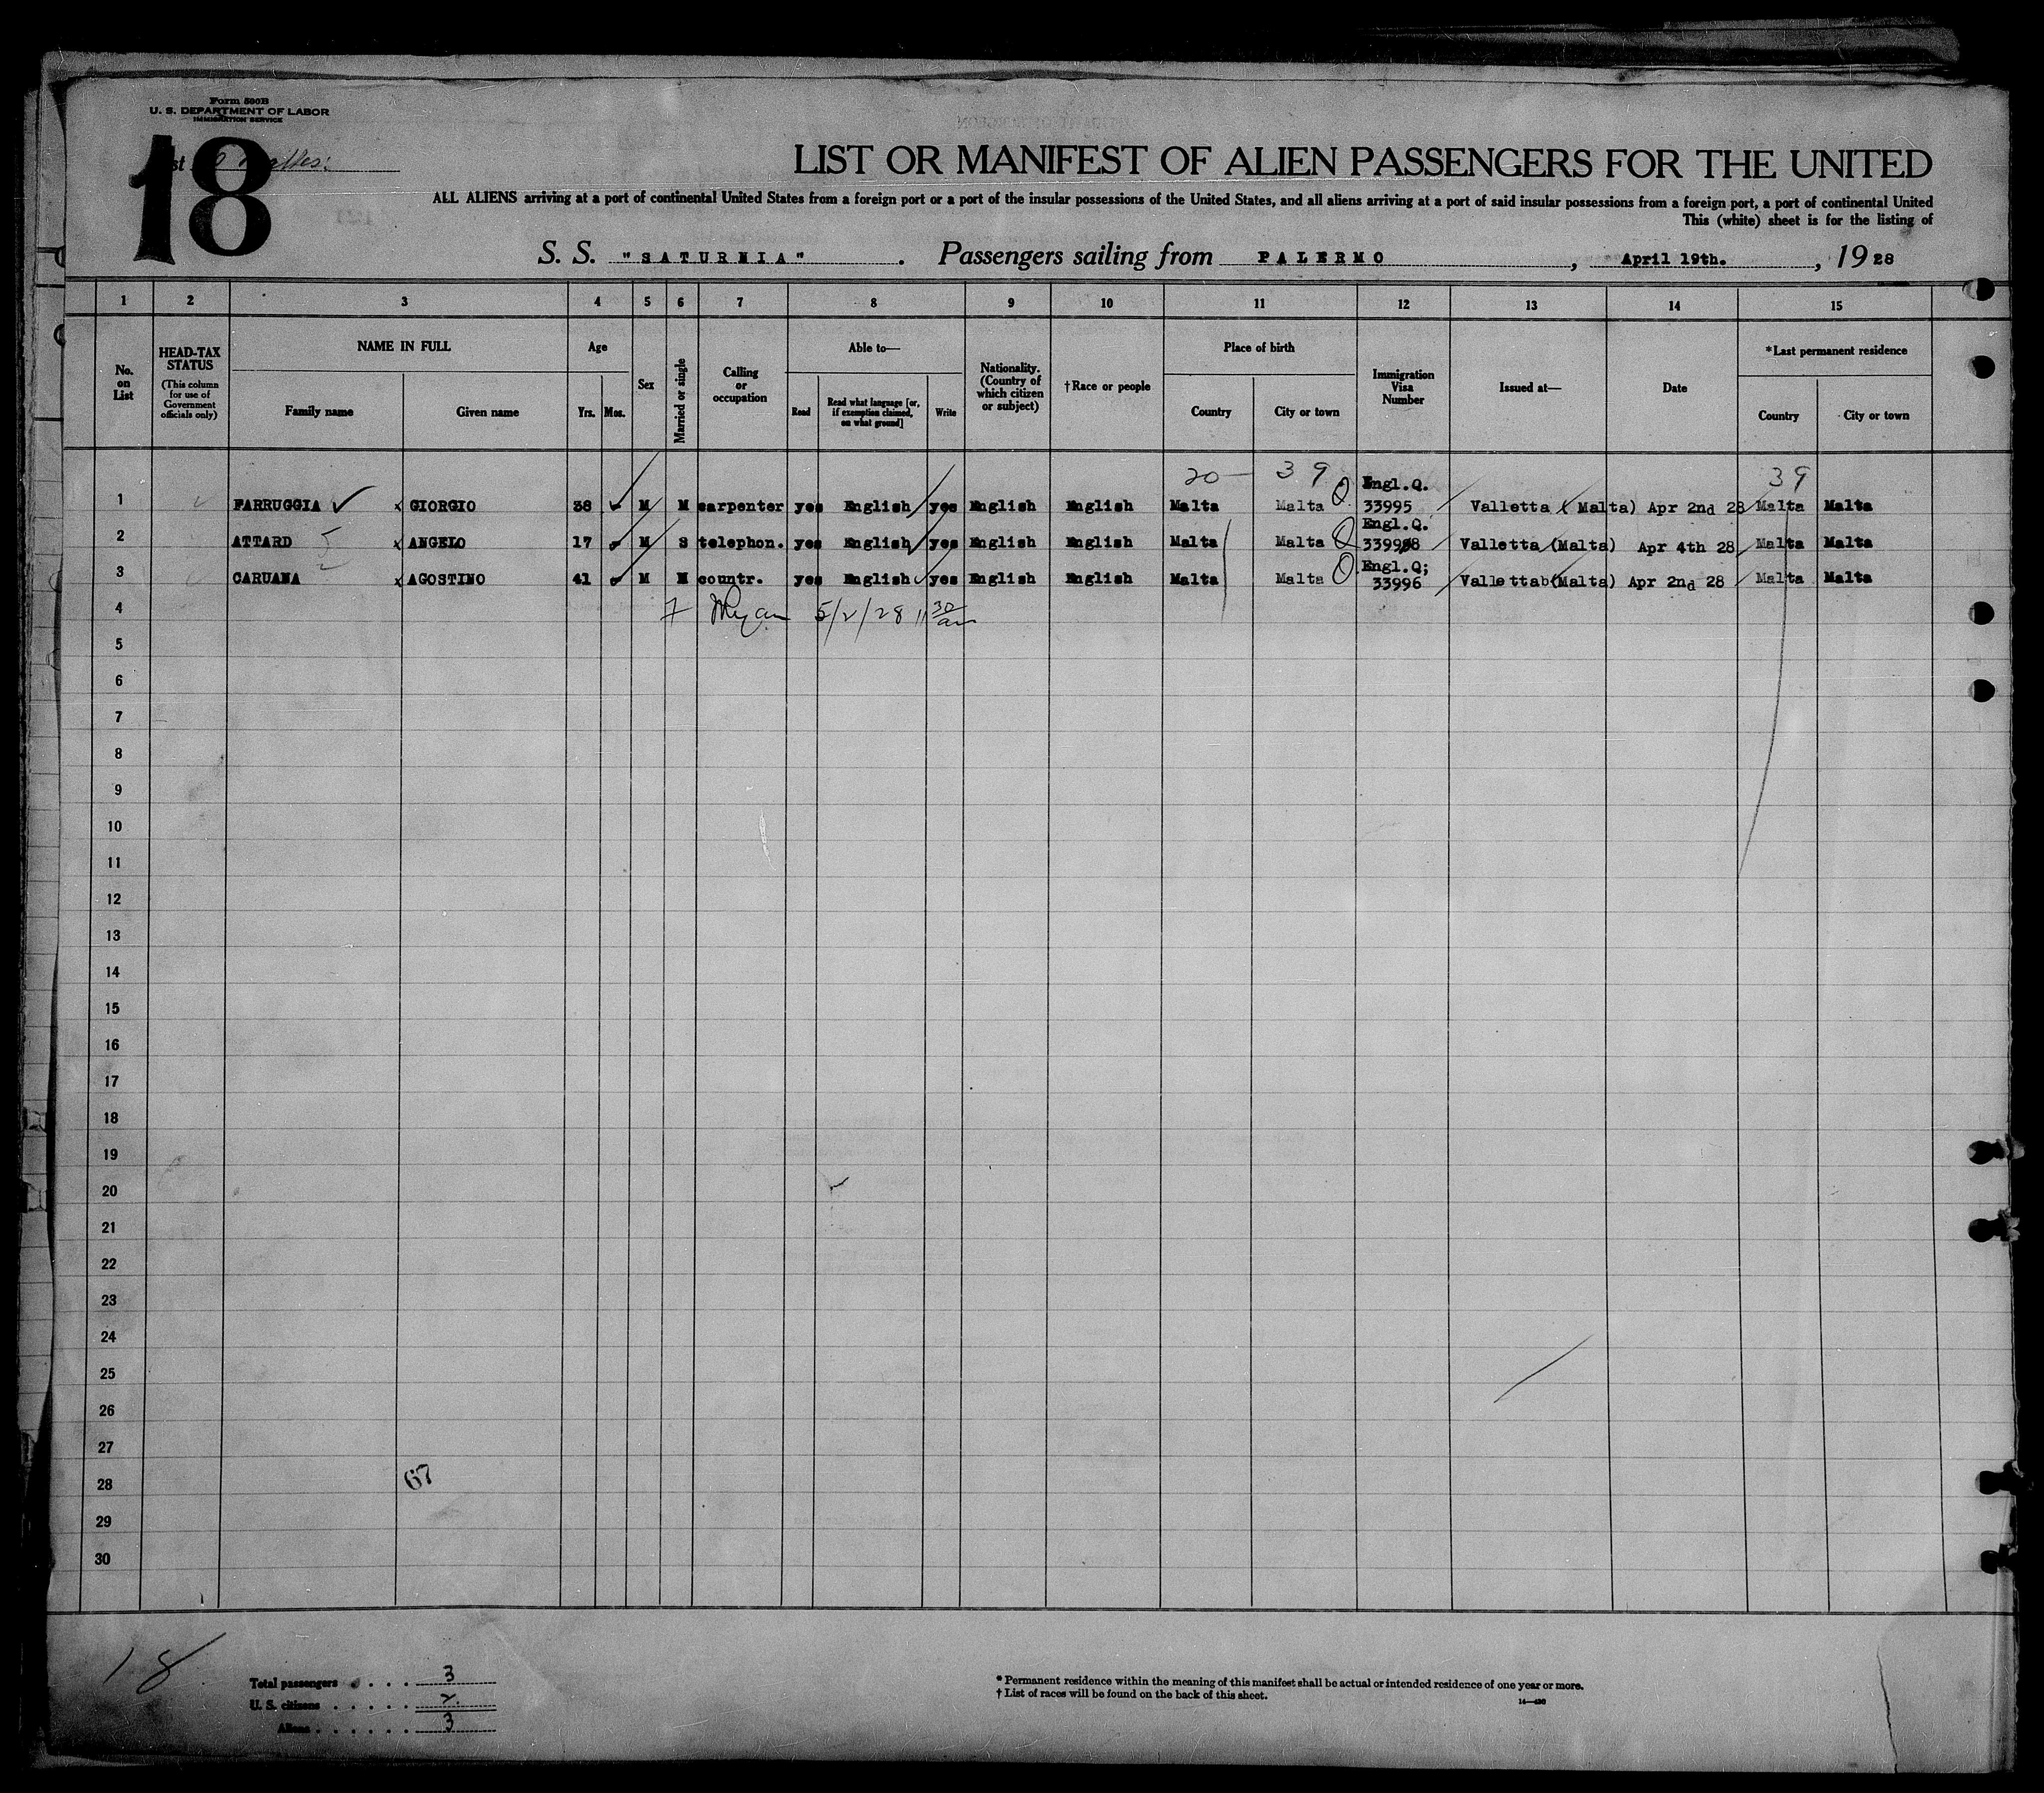 Form 500B
U. S. DEPARTMENT OF LABOR
IMMIGRATION SERVICE
18
LIST OR MANIFEST OF ALIEN PASSENGERS FOR THE UNITED
ALL ALIENS arriving at a port of continental United States from a foreign port or a port of the insular possessions of the United States, and all aliens arriving at a port of said insular possessions from a foreign port, a port of continental United
This (white) sheet is for the listing of
S. S. "SATURNIA". Passengers sailing from PALERMO, April 19th., 1928
1 2 3 4 5 6 7 8 9 10 11 12 13 14 15
No. on List
HEAD-TAX STATUS
(This column for use of Government officials only)
NAME IN FULL
Family name
Given name
Age
Yrs.
Mos.
Sex
Married or single
Calling or occupation
Able to—
Read
Read what language [or, if exemption claimed, on what ground]
Write
Nationality. (Country of which citizen or subject)
†Race or people
Place of birth
Country
City or town
Immigration Visa Number
Issued at—
Date
*Last permanent residence
Country
City or town
20 — 39 39
Engl.Q.
1 FARRUGGIA ✓ x GIORGIO 38 M M carpenter yes English yes English English Malta Malta 33995 Valletta ( Malta) Apr 2nd 28 Malta Malta
Engl.Q.
2 ATTARD 5 x ANGELO 17 M S telephon. yes English yes English English Malta Malta 33998 Valletta (Malta) Apr 4th 28 Malta Malta
Engl.Q;
3 CARUANA x AGOSTINO 41 M M countr. yes English yes English English Malta Malta 33996 Vallettab(Malta) Apr 2nd 28 Malta Malta
4 5/2/28 11 30 am
5
6
7
8
9
10
11
12
13
14
15
16
17
18
19
20
21
22
23
24
25
26
27
28 67
29
30
18
Total passengers . . . . 3
U. S. citizens . . . . .
Aliens . . . . . . 3
* Permanent residence within the meaning of this manifest shall be actual or intended residence of one year or more.
† List of races will be found on the back of this sheet.